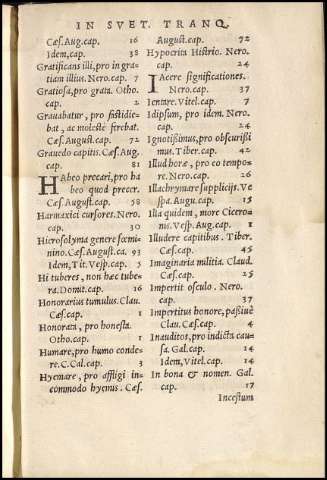 IN SVET. TRANQ.
Cæs. Aug. cap. 16
Idem, cap. 38
Gratificans illi, pro in gra=
tiam illius. Nero. cap. 7
Gratiosa, pro grata. Otho.
cap. 2
Grauabatur, pro fastidie=
bat, ac molestè ferebat.
Cæs. August. cap. 72
Grauedo capitis. Cæs. Aug.
cap. 81
HAbeo precari, pro ha
beo quod precer.
Cæs. August. cap. 58
Harmaxici cursores. Nero.
cap. 30
Hierosolyma genere fœmi=
nino. Cæs. August. ca. 93
Idem, Tit. Vesp. cap. 5
Hi tuberes, non hæc tube=
ra. Domit. cap. 16
Honorarius tumulus. Clau.
Cæs. cap. 1
Honorata, pro honesta.
Otho. cap. 1
Humare, pro humo conde=
re. C. Cal. cap. 3
Hyemare, pro affligi in=
commodo hyemis. Cæs.
August. cap. 72
Hypocrita Histrio. Nero.
cap. 24
IAcere significationes.
Nero. cap. 37
Ientare. Vitel. cap. 7
Idipsum, pro idem. Nero.
cap. 24
Ignotissimus, pro obscurissi
mus. Tiber. cap. 42
Illud horæ, pro eo tempo=
re. Nero. cap. 26
Illachrymare supplicijs. Ve
spa. Augu. cap. 15
Illa quidem, more Cicero=
nis. Vesp. Aug. cap. 1
Illudere capitibus. Tiber.
Cæs. cap. 45
Imaginaria militia. Claud.
Cæs. cap. 25
Impertit osculo. Nero.
cap. 37
Impertitus honore, passiuè
Clau. Cæs. cap. 4
Inauditos, pro indicta cau=
sa. Gal. cap. 14
Idem, Vitel. cap. 14
In bona & nomen. Gal.
cap. 17
Incestum